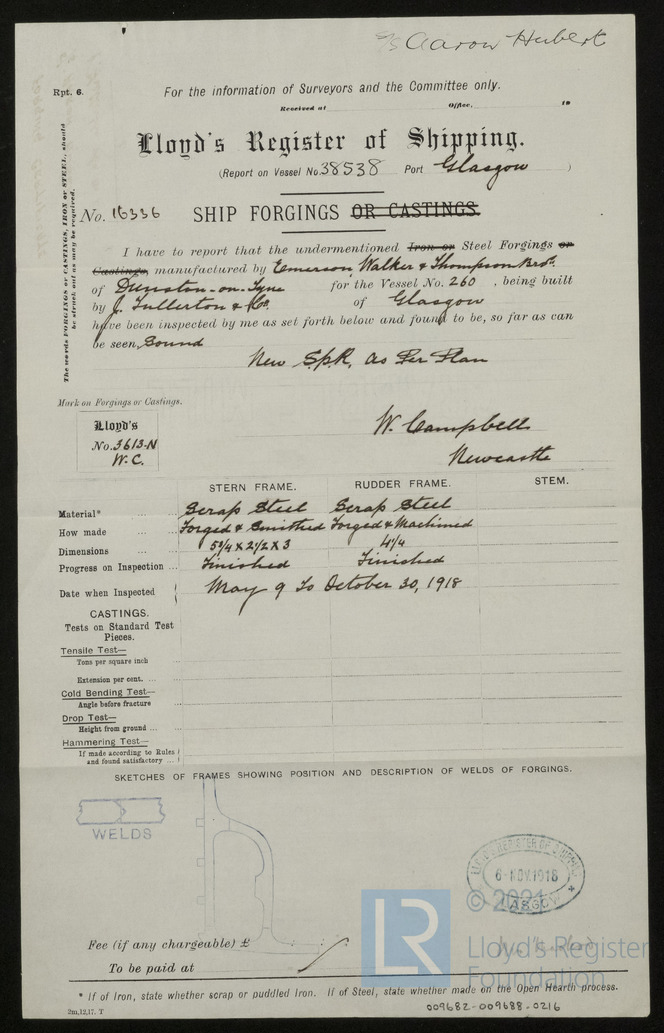 S/S Aaron Hubert
Rpt. 6.
For the information of Surveyors and the Committee only.
Received at Office, 19
Lloyd's Register of Shipping.
(Report on Vessel No. 38538 Port Glasgow )
No. 16336 SHIP FORGINGS OR CASTINGS.
The words FORGINGS or CASTINGS, IRON or STEEL, should
be struck out as may be required.
I have to report that the undermentioned Iron or Steel Forgings or
Castings, manufactured by Emerson, Walker & Thompson Bros.
of Dunston-on-Tyne for the Vessel No. 260 , being built
by J. Fullerton & Co. of Glasgow
have been inspected by me as set forth below and found to be, so far as can
be seen, Sound
New as Per Plan
Mark on Forgings or Castings.
Lloyd's
No. 3613-N
W.C.
W. Campbell
Newcastle
STERN FRAME. RUDDER FRAME. STEM.
Material* ... Scrap Steel Scrap Steel
How made ... Forged & Smithed Forged & Machined
Dimensions ... 5 3/4 x 2 1/2 x 3 4 1/4
Progress on Inspection ... Finished Finished
Date when Inspected May 9 To October 30, 1918
CASTINGS.
Tests on Standard Test
Pieces.
Tensile Test—
Tons per square inch ...
Extension per cent. ... ...
Cold Bending Test—
Angle before fracture ...
Drop Test—
Height from ground ... ...
Hammering Test—
If made according to Rules
and found satisfactory ...
SKETCHES OF FRAMES SHOWING POSITION AND DESCRIPTION OF WELDS OF FORGINGS.
WELDS
LLOYD'S REGISTER OF SHIPPING
6-NOV.1918
GLASGOW
© 2021
LR
Lloyd's Register
Foundation
Fee (if any chargeable) £
To be paid at
* If of Iron, state whether scrap or puddled Iron. If of Steel, state whether made on the Open Hearth process.
2m,12,17. T
009682-009688-0216